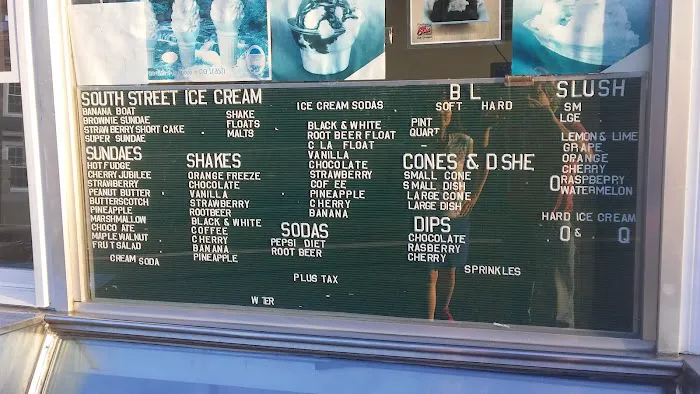 SOUTH STREET ICE CREAM
BANANA BOAT
BROWNIE SUNDAE
STRAWBERRY SHORT CAKE
SUPER SUNDAE
SHAKE
FLOATS
MALTS
SUNDAES
HOT FUDGE
CHERRY JUBILEE
STRAWBERRY
PEANUT BUTTER
BUTTERSCOTCH
PINEAPPLE
MARSHMALLOW
CHOCO ATE
MAPLE WALNUT
FRUT SALAD
CREAM SODA
SHAKES
ORANGE FREEZE
CHOCOLATE
VANILLA
STRAWBERRY
ROOTBEER
BLACK & WHITE
COFFEE
CHERRY
BANANA
PINEAPPLE
ICE CREAM SODAS
BLACK & WHITE
ROOT BEER FLOAT
C LA FLOAT
VANILLA
CHOCOLATE
STRAWBERRY
COF EE
PINEAPPLE
CHERRY
BANANA
SODAS
PEPSI DIET
ROOT BEER
PLUS TAX
W TER
B L
SOFT HARD
PINT
QUART
CONES & D SHE
SMALL CONE
SMALL DISH
LARGE CONE
LARGE DISH
DIPS
CHOCOLATE
RASBERRY
CHERRY
SPRINKLES
SLUSH
SM
LGE
LEMON & LIME
GRAPE
ORANGE
CHERRY
RASPBERRY
WATERMELON
HARD ICE CREAM
O & Q